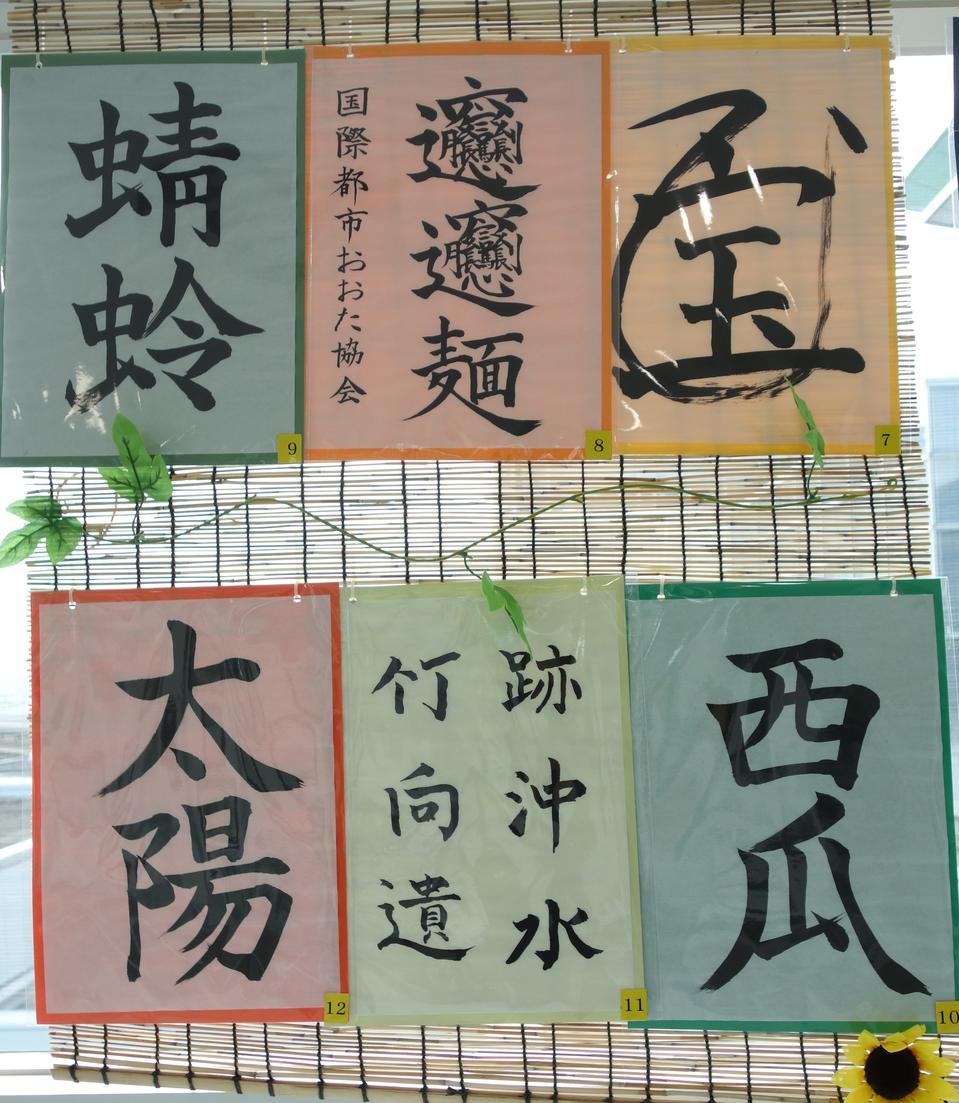 7
𰻞𰻞麺
国際都市おおた協会
8
蜻蛉
9
西瓜
10
跡沖水
竹向遺
11
太陽
12